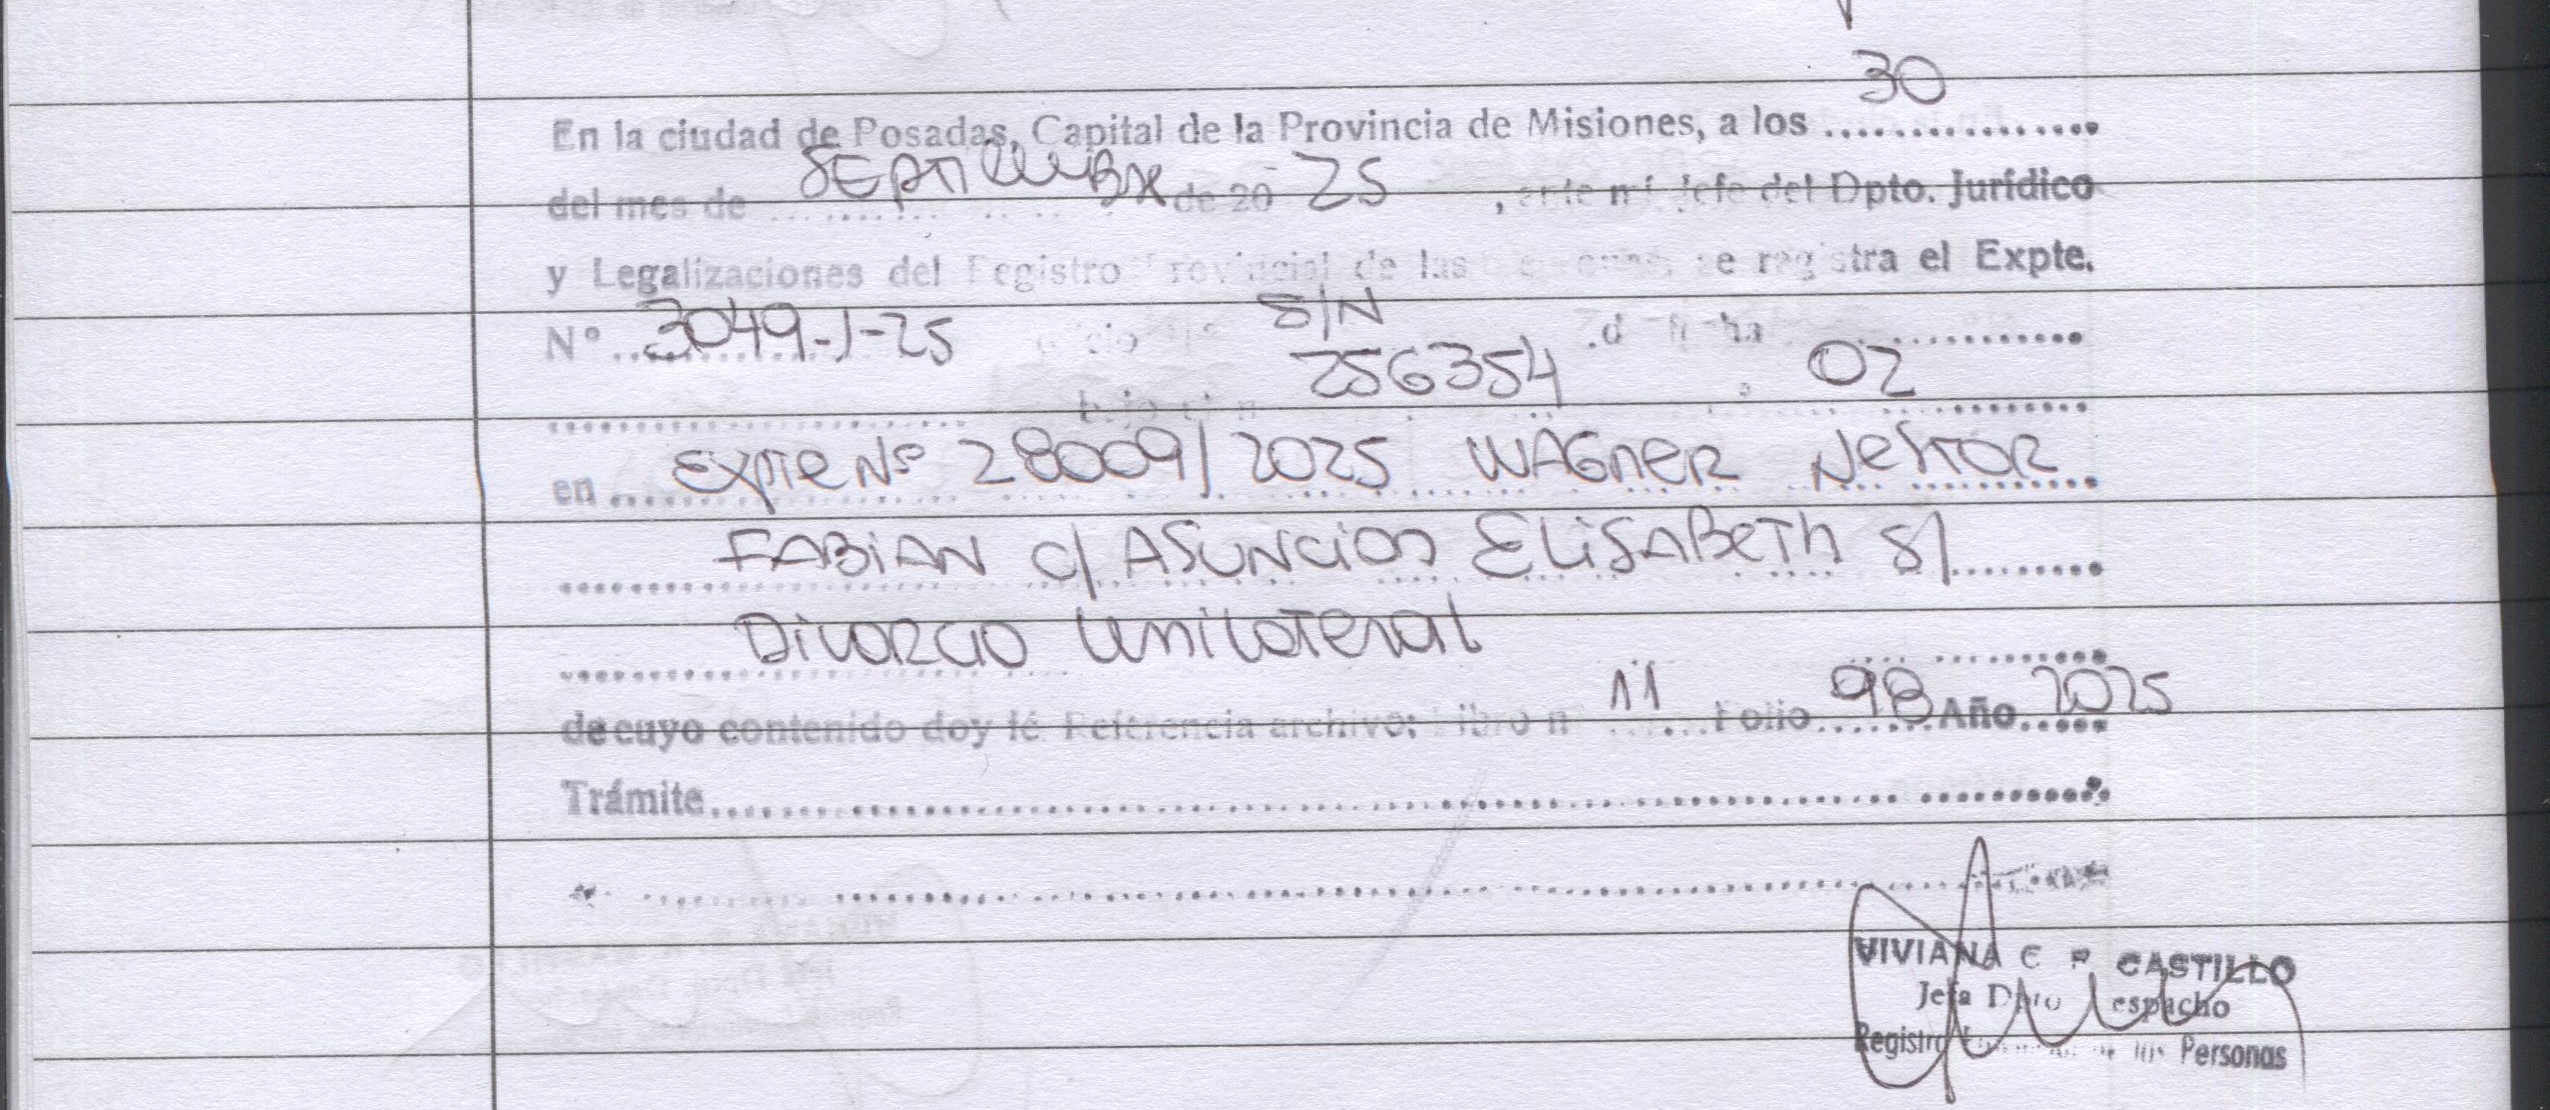 30
En la ciudad de Posadas, Capital de la Provincia de Misiones, a los ................
del mes de SEPTIEMBRE de 20 25 , ante mí Jefe del Dpto. Jurídico
y Legalizaciones del Registro Provincial de las se registra el Expte.
Nº 3049-J-25 S/N
256354 02
en Expte Nº 28009/2025 WAGNER NESTOR
FABIAN c/ ASUNCION ELISABETH S/
Divorcio Unilateral
de cuyo contenido doy fé Referencia archivo: Libro n 11 Folio 98 Año 2025
Trámite
VIVIANA CASTILLO
Jefa Dpto espacho
Registro de las Personas